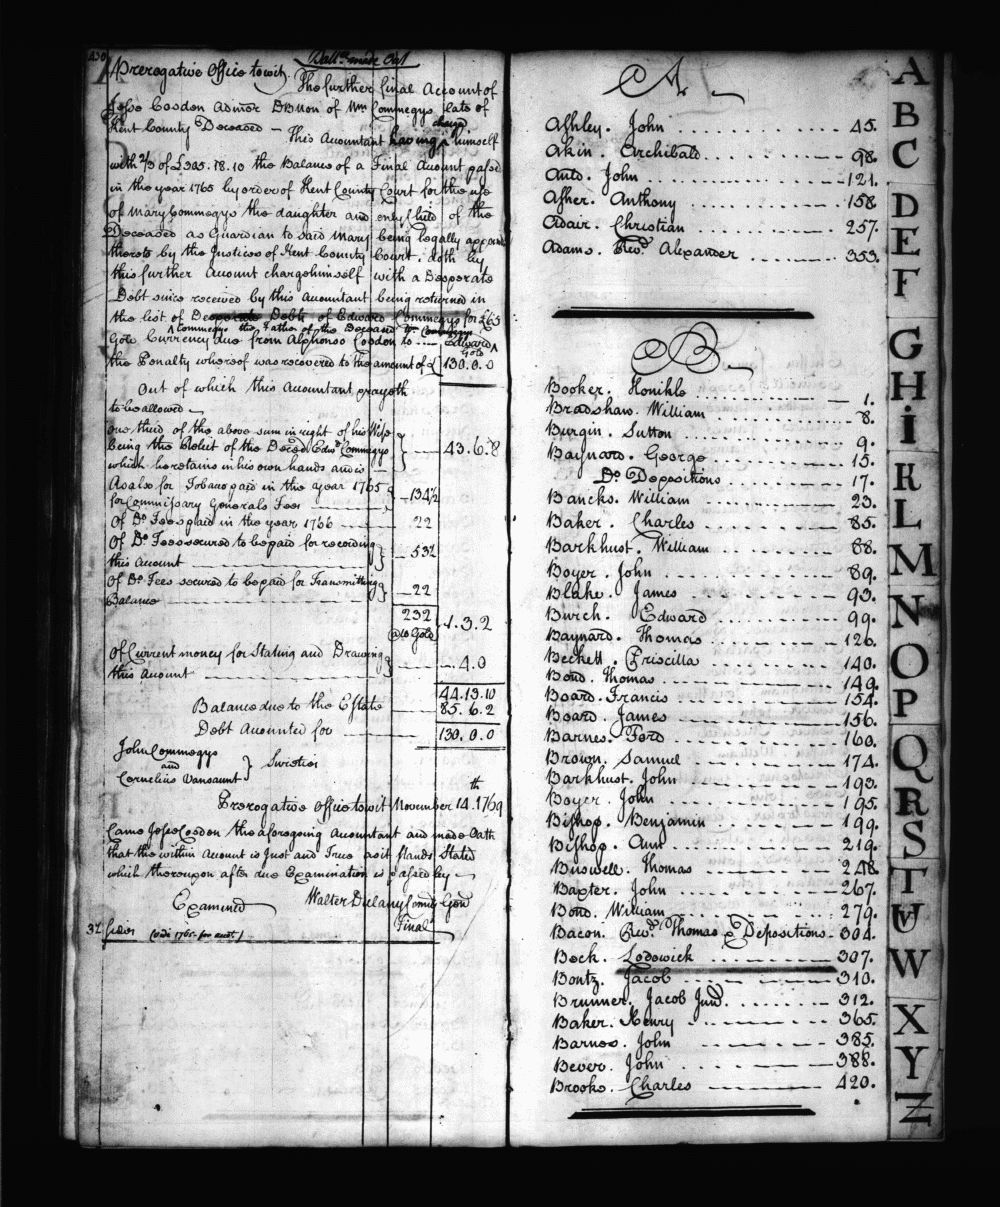 Ball.ce made Out
Prerogative Office towit. The further final Account of
Jesse Cosdon Admor DBonon of Wm Commegys late of
Kent County Deceased – This Accountant having charged himself
with 2/3 of £395.18.10 the Balance of a Final Account passed
in the year 1765 by order of Kent County Court for the use
of Mary Commegys the daughter and only Child of the
Deceased as Guardian to said Mary being legally appoint
thereto by the Justices of Kent County Court. doth by
this further Account charge himself with a Desperate
Debt since received by this Accountant being returned in
the list of Desperate Debts of Edward Commegys for £65
Commegys the Father of the Deceased
Gold Currency due from Alphonso Cosdon to Edward
the Penalty whereof was recovered to the amount of Gold 130.0.0
Out of which this Accountant prayeth
to be allowed
one third of the above sum in right of his Wife
being the Relict of the Deced Edwd Commegys 43.6.8
which he retains in his own hands and is
As also for Tobacco paid in the year 1765
for Commissary Generals Fees 134½
Of Do. Fees paid in the year 1766 22
Of Do. Fees secured to be paid for recording
this Account 53½
Of Do. Fees secured to be paid for Transmitting
Balance 22
232
@10 Gold 1.3.2
Of Current money for Stating and Drawing
this Account 4.0
44.13.10
Balance due to the Estate 85.6.2
Debt Accounted for 130.0.0
John Commegys
and } Sureties
Cornelius Vansaunt
Prerogative Office towit November 14.th 1769
Came Jesse Cosdon the aforegoing Accountant and made Oath
that the within Account is Just and True as it stands Stated
which thereupon after due Examination is passed by
Walter Dulany Comry Genl
Examined
Final
32 sides
A
Ashley. John 45.
Akin. Archibald 98.
Auld. John 121.
Asher. Anthony 158.
Adair. Christian 257.
Adams. Revd. Alexander 353.
B
Booker. Honikle 1.
Bradshaw. William 8.
Burgin. Sutton 9.
Baynard. George 15.
Do. Depositions 17.
Bancks. William 23.
Baker. Charles 85.
Barkhust. William 88.
Boyer. John 89.
Blake. James 93.
Burch. Edward 99.
Baynard. Thomas 126.
Beckett. Priscilla 140.
Bond. Thomas 149.
Board. Francis 154.
Board. James 156.
Barnes. Ford 160.
Brown. Samuel 174.
Barkhust. John 193.
Boyer. John 195.
Bishop. Benjamin 199.
Bishop. Ann 219.
Buswell. Thomas 248.
Baxter. John 267.
Bond. William 279.
Bacon. Revd. Thomas & Depositions 304.
Beck. Lodowick 307.
Bontz. Jacob 310.
Brunner. Jacob Junr. 312.
Baker. Henry 365.
Barnes. John 385.
Bever. John 388.
Brooks. Charles 420.
A
B
C
D
E
F
G
H
I
K
L
M
N
O
P
Q
R
S
T
V
W
X
Y
Z